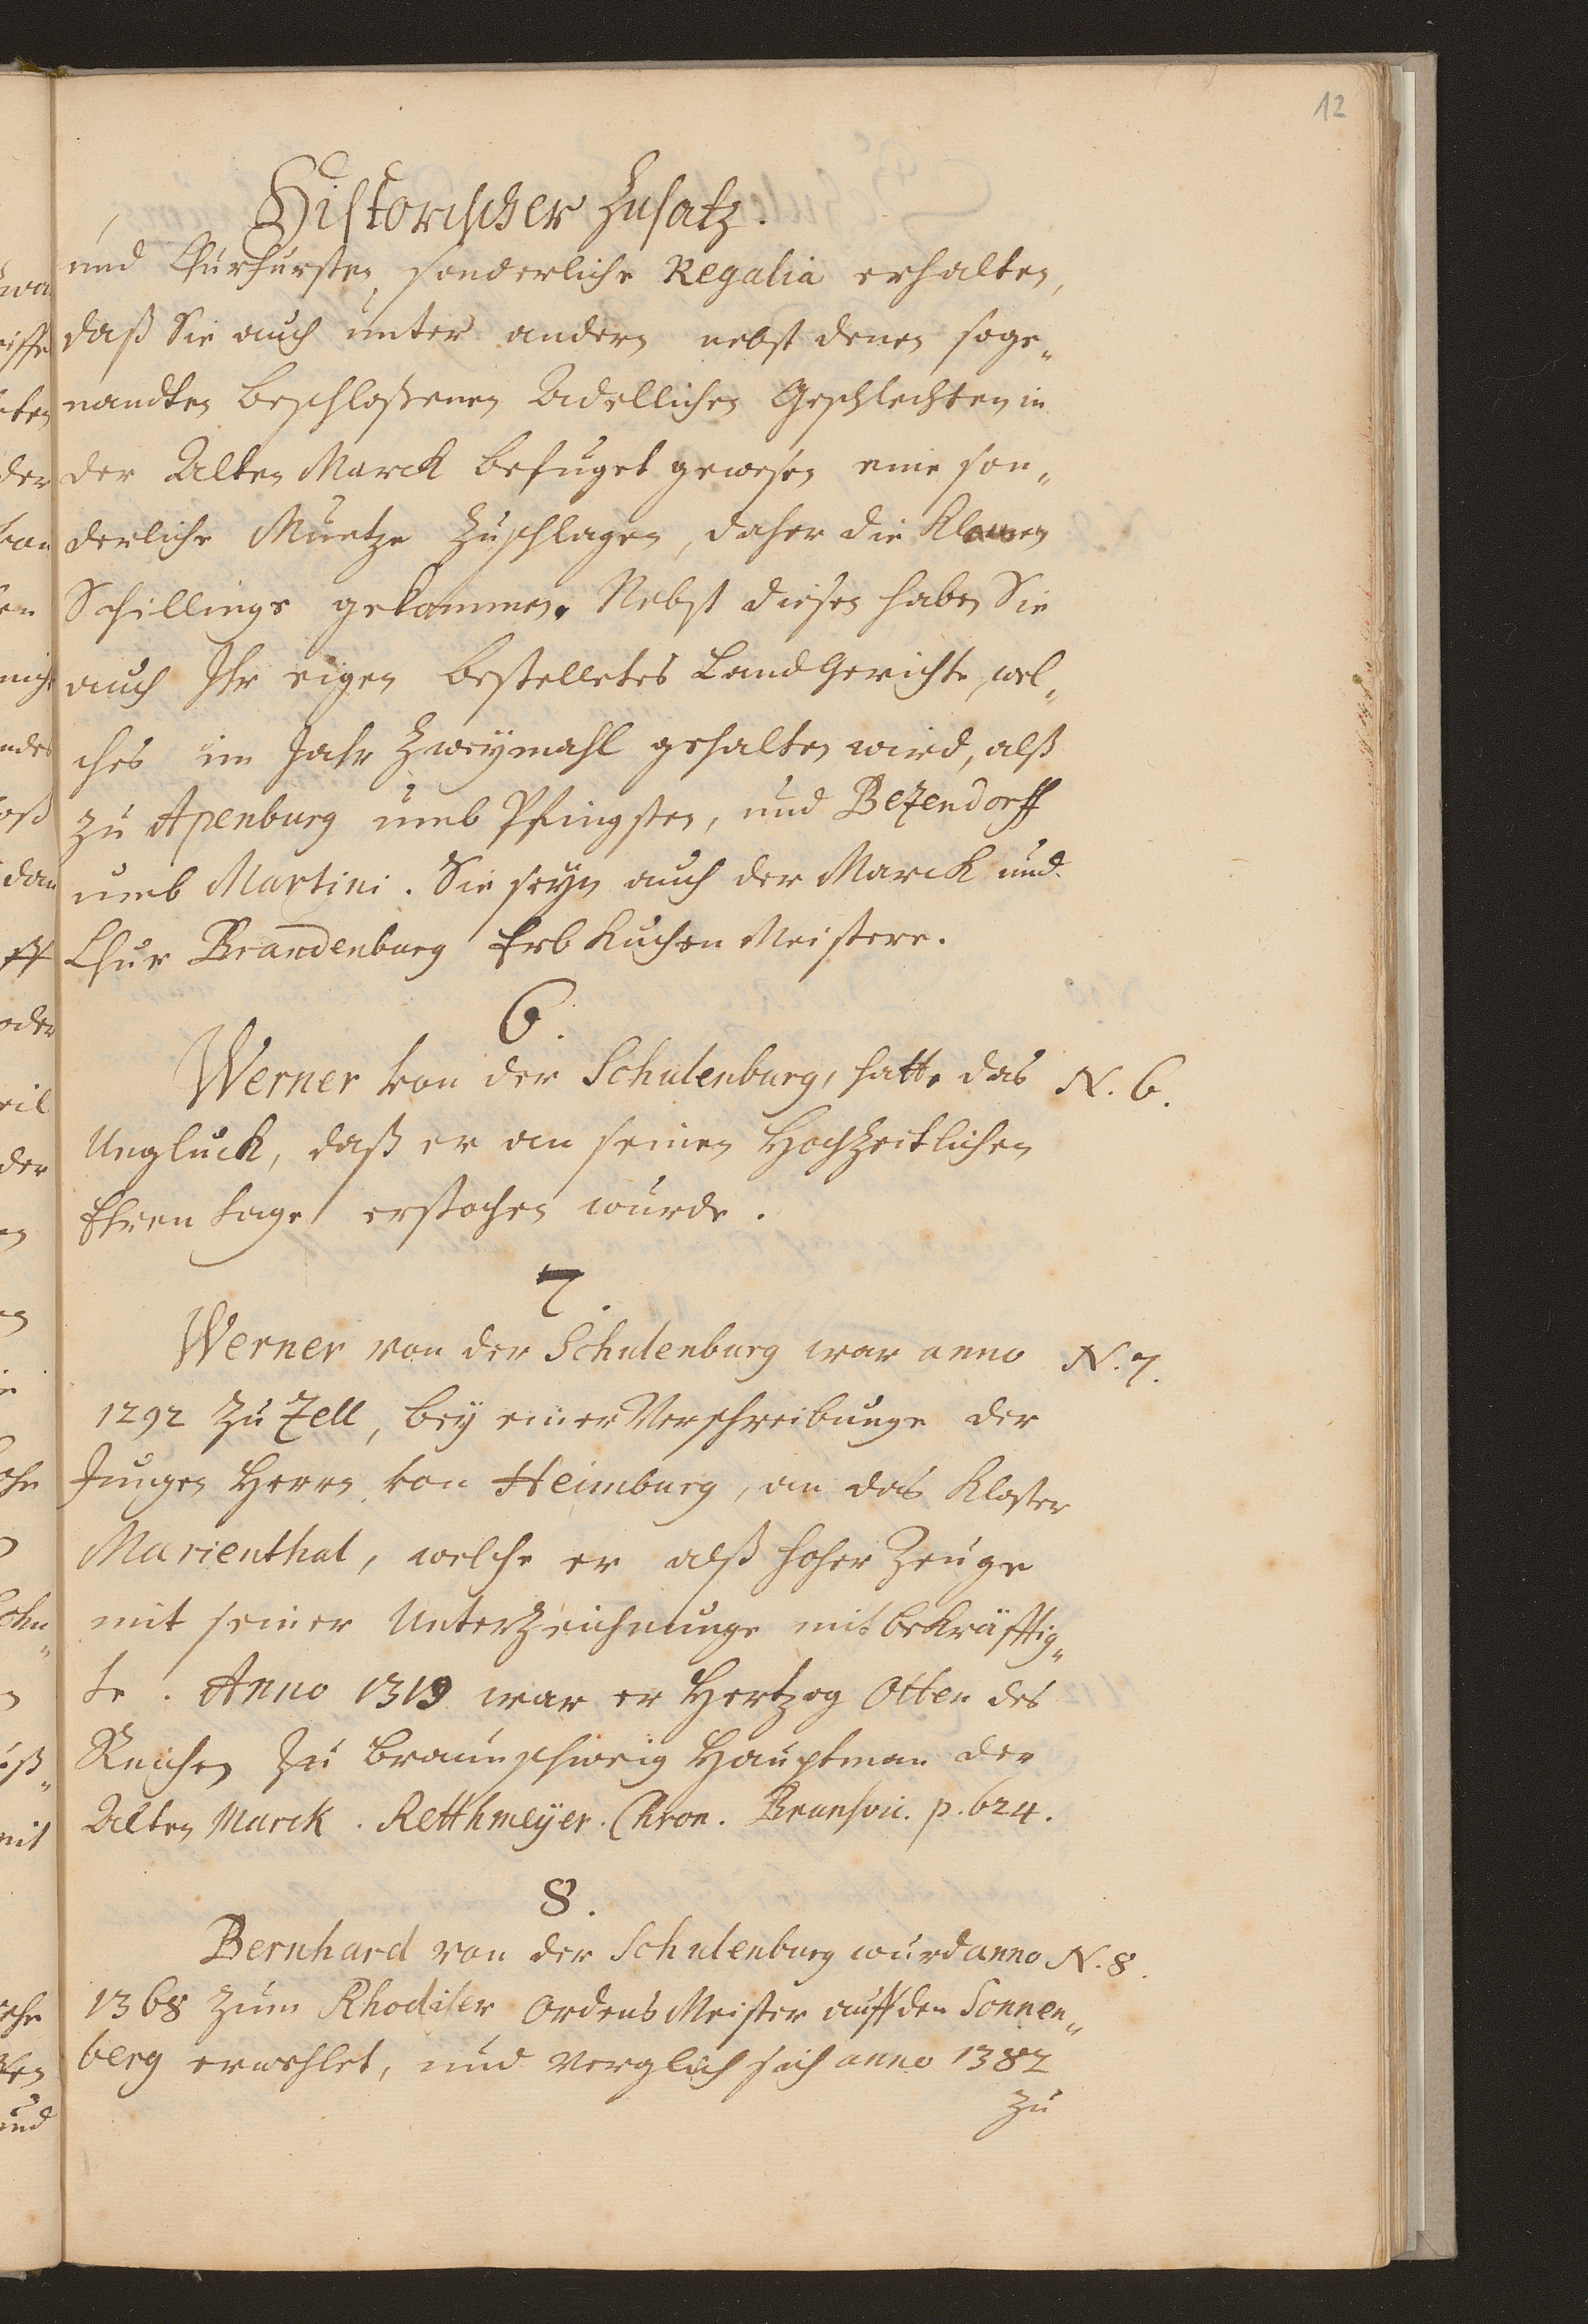 12
Historischer Zusatz.
und Churfursten sonderliche Regalia erhalten,
daß Sie auch unter andern nebst denen soge„
nandten beschloßenen Adellichen Geschlechten in
der Alten Marck befuget gewesen eine son„
derliche Muntze zuschlagen, daher die Klawen
Schillings gekommen. Nebst diesen haben Sie
auch Ihr eigen bestelletes Land Gerichte, wel„
ches im Jahr Zweymahl gehalten wird, alß
zu Apenburg umb Pfingsten, und Bezendorff
umb Martini. Sie seyn auch der Marck und
Chur Brandenburg Erb Kuchen Meistere.
6.
Werner von der Schulenburg, hatte das N. 6.
Ungluck, daß er an seinen Hochzeitlichen
Ehren tage erstochen wurde.
7.
Werner von der Schulenburg war anno N. 7.
1292 zu Zell, bey einer Verschreibunge der
Jungen Herrn von Heimburg, an das Kloster
Marienthal, welche er alß hoher Zeuge
mit seiner Unterzeichnunge mit bekräfftig„
te. Anno 1319 war er Hertzog Otten des
Reichen zu Braunschweig Hauptman der
Alten Marck. Retthmeyer. Chron. Brunsvic. p. 624.
8.
Bernhard von der Schulenburg wurd anno N. 8.
1368 zum Rhodiser Ordens Meister auff den Sonnen„
berg erwehlet, und verglich sich anno 1382
zu